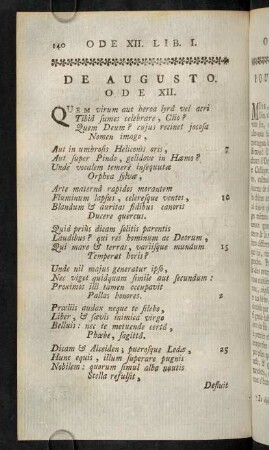 140 ODE XII. LIB. I.
DE AUGUSTO.
ODE XII.
QUEM virum aut heroa lyrâ vel acri
Tibiâ sumes celebrare, Clio?
Quem Deum? cujus recinet jocosa
Nomen imago,
Aut in umbrosis Heliconis oris, 5
Aut super Pindo, gelidove in Hæmo?
Unde vocalem temerè insequutæ
Orphea sylvæ,
Arte maternâ rapidos morantem
Fluminum lapsus, celeresque ventos, 10
Blandum & auritas fidibus canoris
Ducere quercus.
Quid priùs dicam solitis parentis
Laudibus? qui res hominum ac Deorum,
Qui mare & terras, variisque mundum 15
Temperat horis?
Unde nil majus generatur ipso,
Nec viget quidquam simile aut secundum:
Proximos illi tamen occupavit
Pallas honores. 2
Præliis audax neque te silebo,
Liber, & sævis inimica virgo
Belluis: nec te metuende certâ,
Phœbe, sagittâ.
Dicam & Alcidem; puerosque Ledæ, 25
Hunc equis, illum superare pugnis
Nobilem: quorum simul alba nautis
Stella refulsit,
Defluit